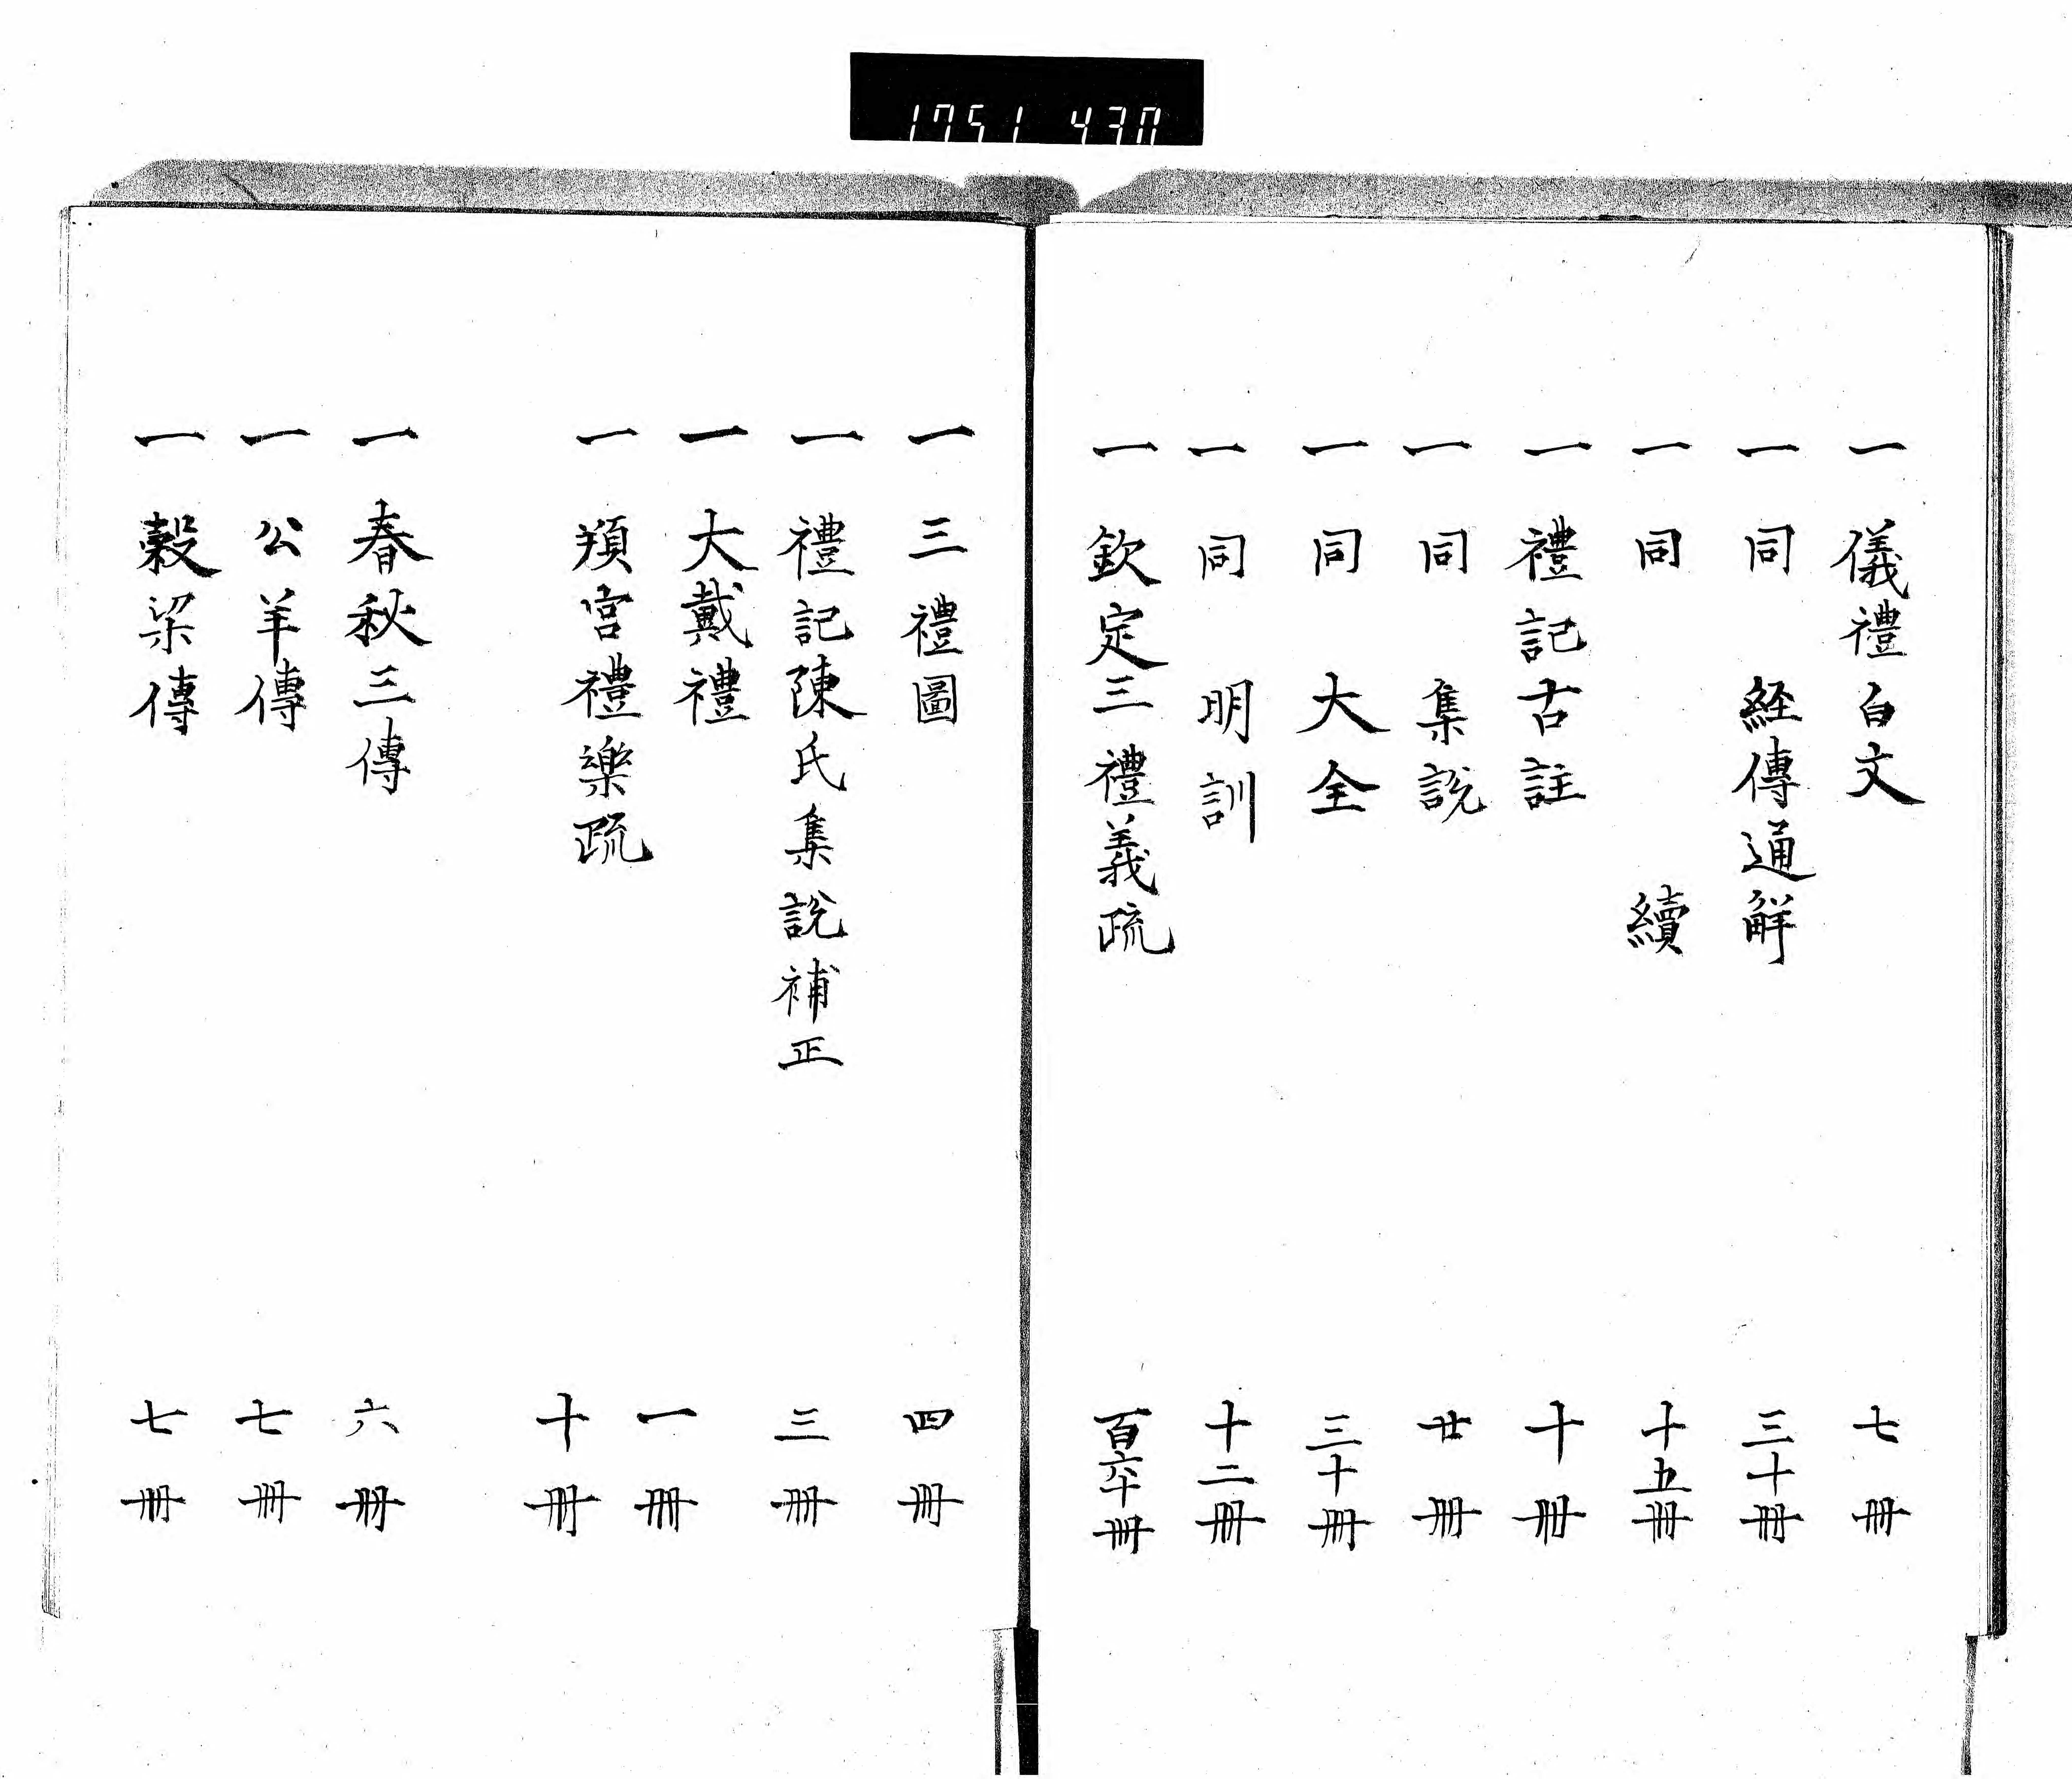 1751 430
一 儀禮白文 七冊
一 同 経傳通觧 三十冊
一 同 續 十五冊
一 禮記古註 十冊
一 同 集説 廿冊
一 同 大全 三十冊
一 同 明訓 十二冊
一 欽定三禮義疏 百六十冊
一 三禮圖 四冊
一 禮記陳氏集説補正 三冊
一 大戴禮 一冊
一 頖宮禮樂疏 十冊
一 春秋三傳 六冊
一 公羊傳 七冊
一 穀梁傳 七冊